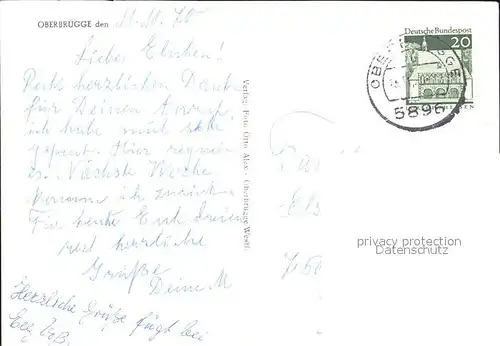 OBERBRÜGGE den 11.11.70
Liebes Elschen!
Recht herzlichen Dank
für Deinen Anruf,
ich habe mich sehr
gefreut. Hier regnet
es. Nächste Woche
komme ich zurück.
Für heute Euch Dreien
recht herzliche
Grüße
Deine M
Herzliche Grüße fügt bei
Verlag: Foto Otto Alex - Oberbrügge Westf.
Deutsche Bundespost
20
OBERBRÜGGE
5896
privacy protection
Datenschutz